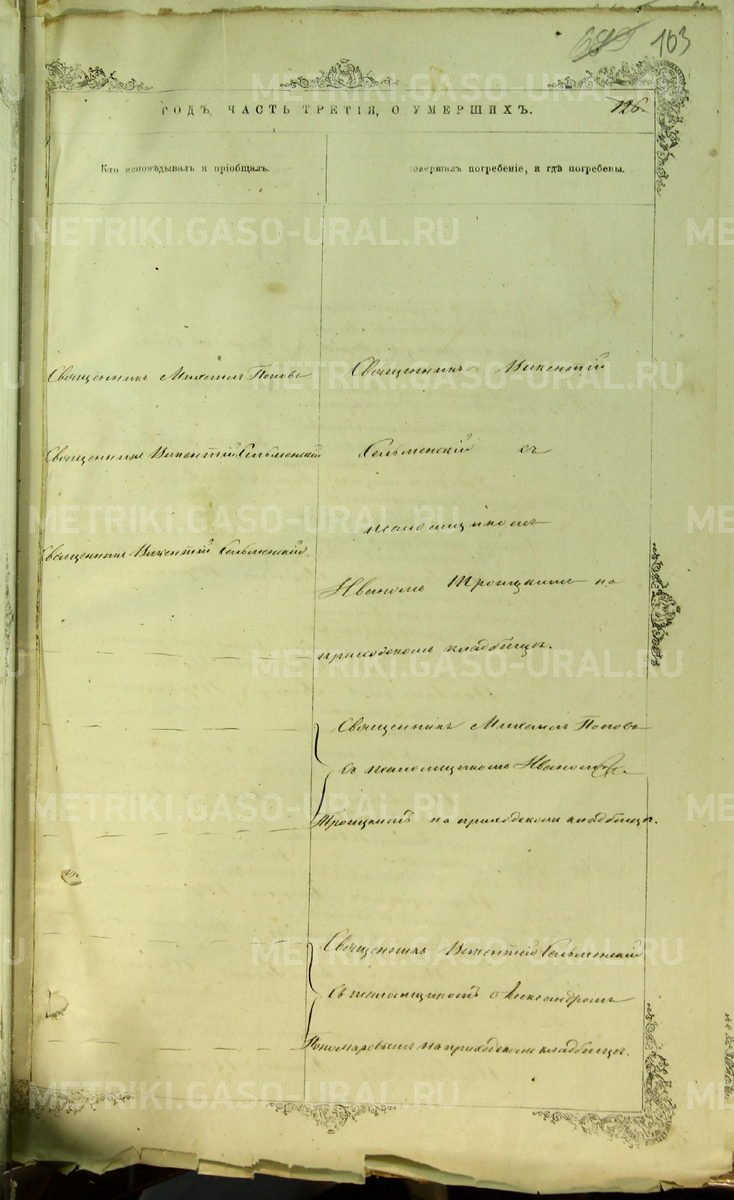 103
126.
ГОДЪ, ЧАСТЬ ТРЕТІЯ, О УМЕРШИХЪ.
Кто исповѣдывалъ и пріобщалъ.
совершалъ погребеніе, и гдѣ погребены.
Священникъ Михаилъ Поповъ
Священникъ Викентій Сельменскій
Священникъ Викентій Сельменскій.
Священникъ Викентій
Сельменскій съ
псаломщикомъ
Иваномъ Троицкимъ на
приходскомъ кладбищѣ.
Священникъ Михаилъ Поповъ
Съ псаломщикомъ Иваномъ
Троицкимъ на приходскомъ кладбищѣ.
Священникъ Викентій Сельменскій
Съ псаломщикомъ Александромъ
Пономаревымъ на приходскомъ кладбищѣ.
METRIKI.GASO-URAL.RU